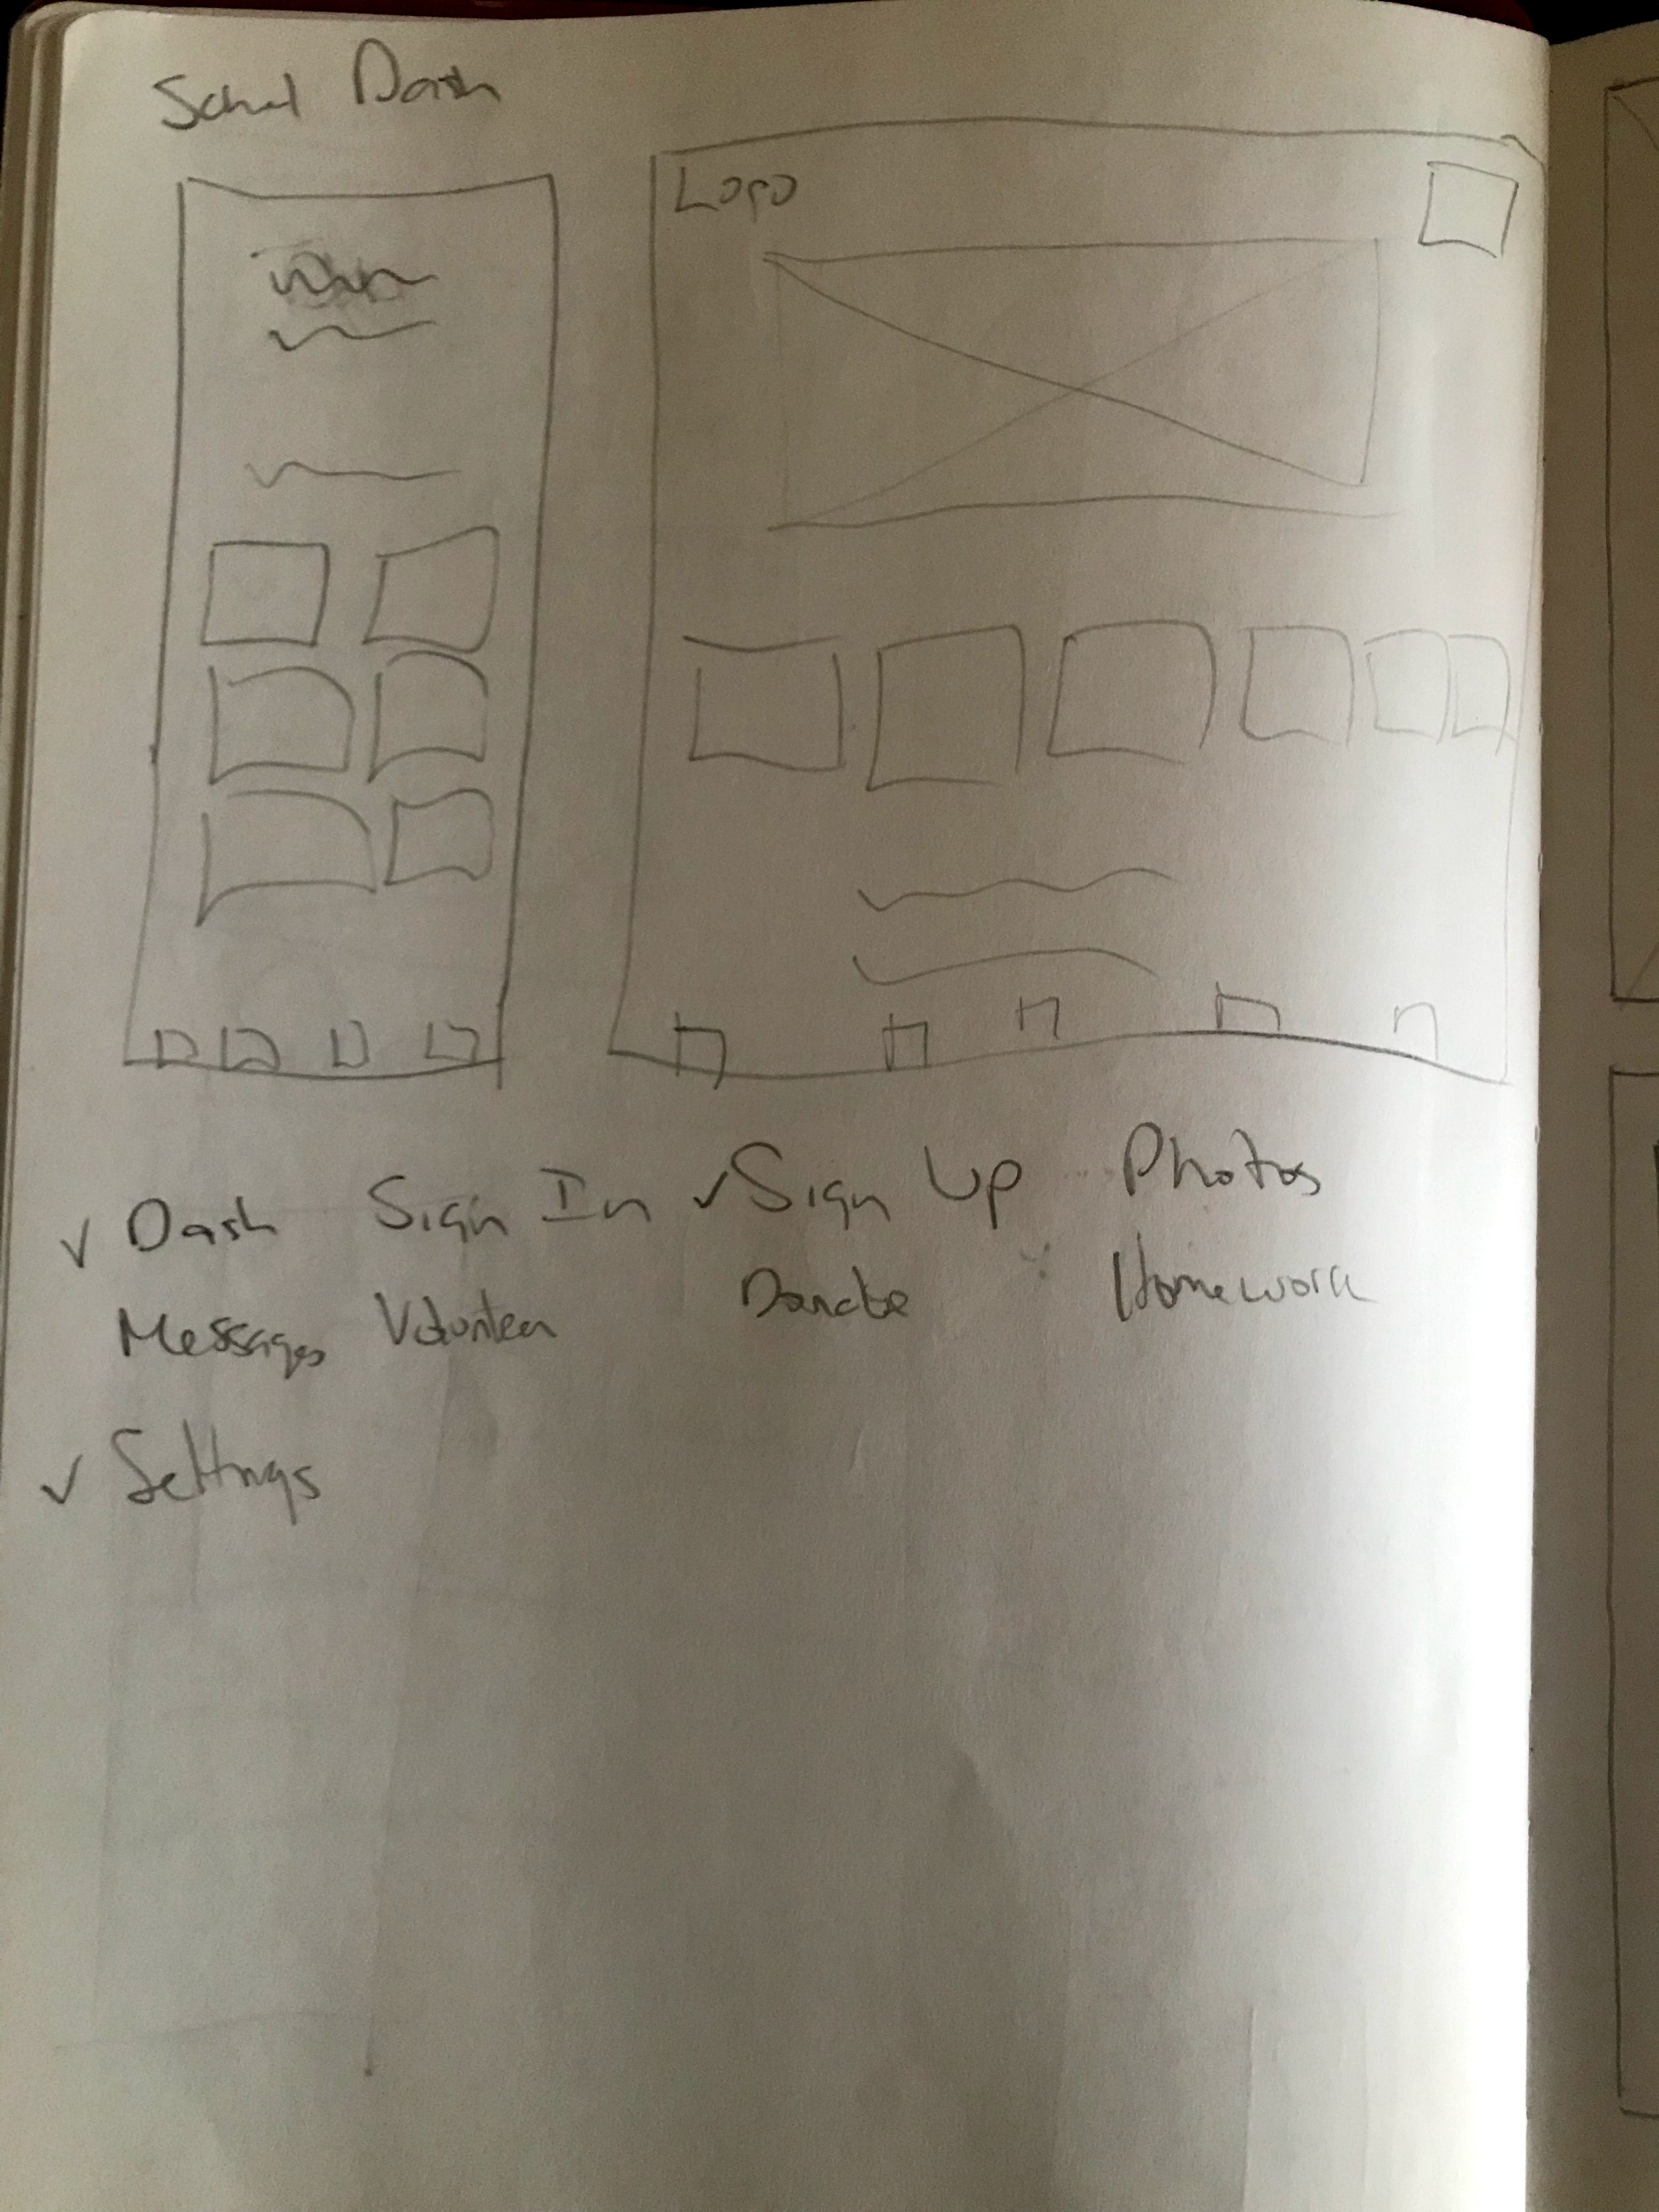 School Dash
Logo
✓ Dash Sign In ✓ Sign Up Photos
Messages Volunteer Donate Homework
✓ Settings